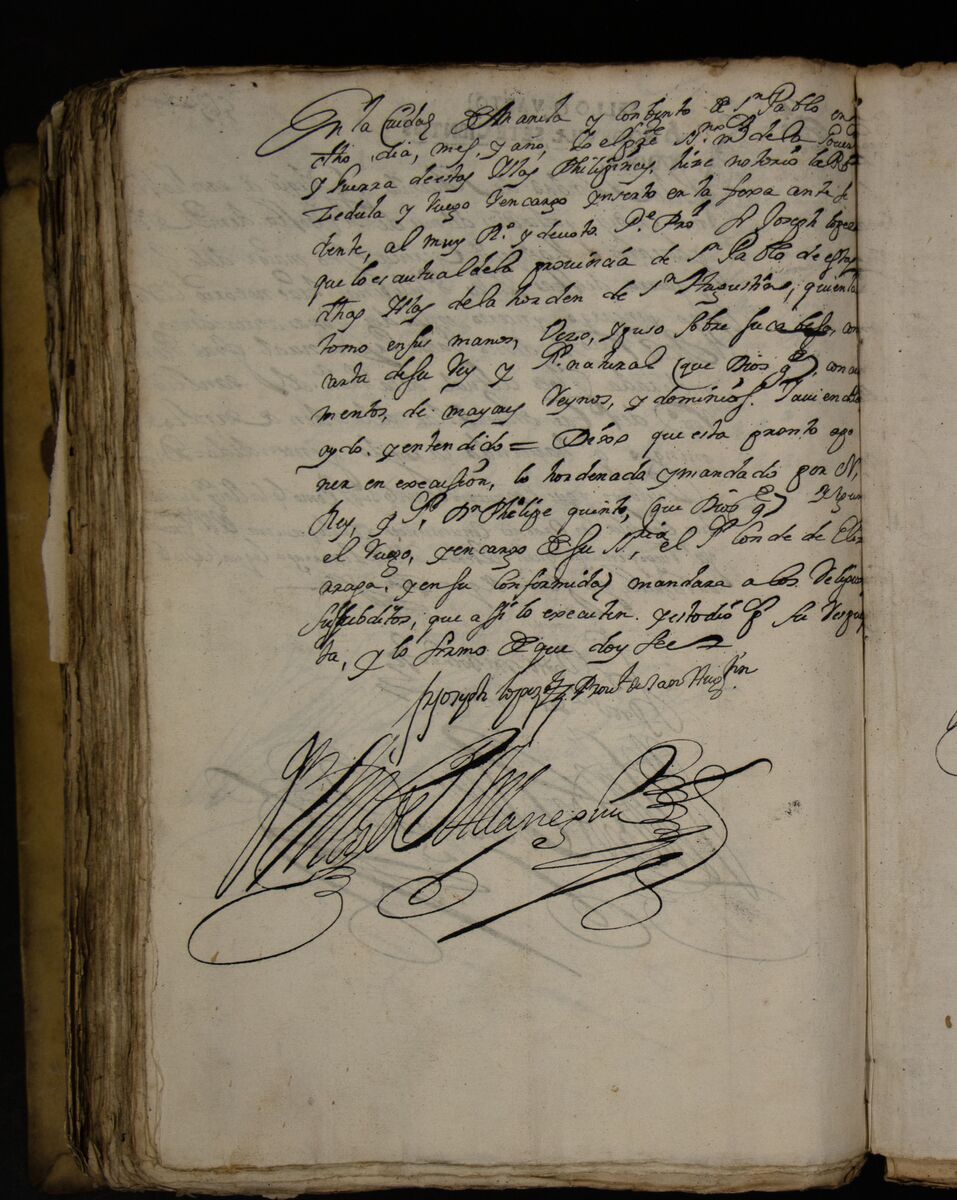 En la Ciudad de Manila y Conbento de Sn Pablo en
dho dia, mes, y año, Yo el preste ssno mr de la Gover
y Guerra de estas Yslas Philipinas, hize notorio la Rl
Zedula y Ruego y encargo ynserto en la foxa ante se
dente, al muy Ro y devoto Pe Prol fr Joseph lopez
que lo es autual de la provincia de Sn Pablo de estas
dhas Yslas de la horden de Sn Augustin, quien la
tomo en sus manos, vezo, y puso sobre su cabesa, como
carta de su Rey y Sr natural (que Dios ge) con au
mentos, de mayores Reynos, y dominios. Y aviendola
oydo. y entendido = Dixo que esta pronto a po
ner en execusion, lo hordenado y mandado por N,
Rey, y Sr, Dn Phelipe quinto, (que Dios ge)
el Ruego, y encargo de su Sria, el Sr Conde de Liza
rraga. y en su Conformidad mandara a los Religiosos
sus subditos, que assi lo executen. y esto dio por su Respues
ta, y lo firmo de que doy fee
fr Joseph lopez Provl de San Augtin